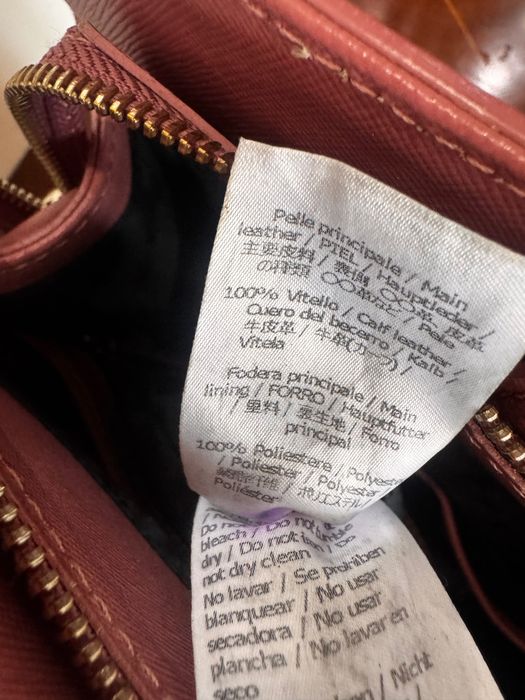 Pelle principale / Main
leather / PIEL / Hauptleder /
主要皮料 / 裏側 〇〇革 皮革
の種類 / 〇〇革 / Pele
100% Vitello / Calf leather /
Cuero del becerro / Kalb /
牛皮革 / 牛革(カーフ) /
Vitela
Fodera principale / Main
lining / FORRO / Hauptfutter
/ 里料 / 裏生地 / Forro
principal
100% Poliestere / Polyester
/ Poliester / Polyester
/ ポリエステル /
Poliéster
bleach / Do not tumble
dry / Do not
not dry clean
No lavar / Se prohiben
blanquear / No usar
secadora / No usar
plancha / No lavar en
seco
Nicht